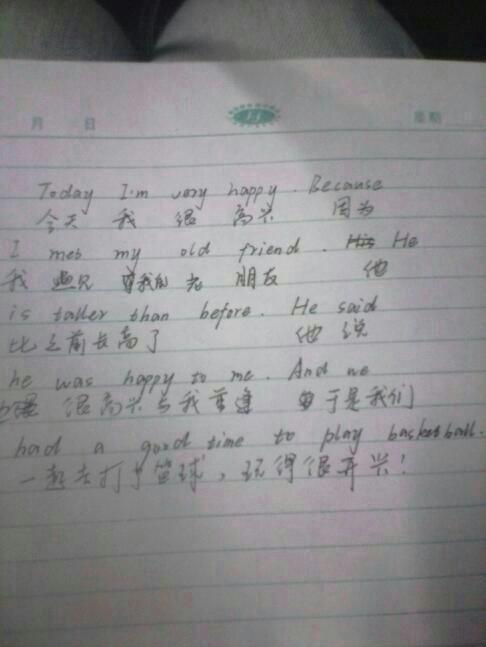 月 日 星期
Today I'm very happy. Because
今天 我 很 高兴 因为
I met my old friend. He
我 遇见 我的 老 朋友 他
is taller than before. He said
比之前长高了 他 说
he was happy to me. And we
很高兴与我重逢 于是我们
had a good time to play basketball.
一起去打了篮球，玩得很开兴！